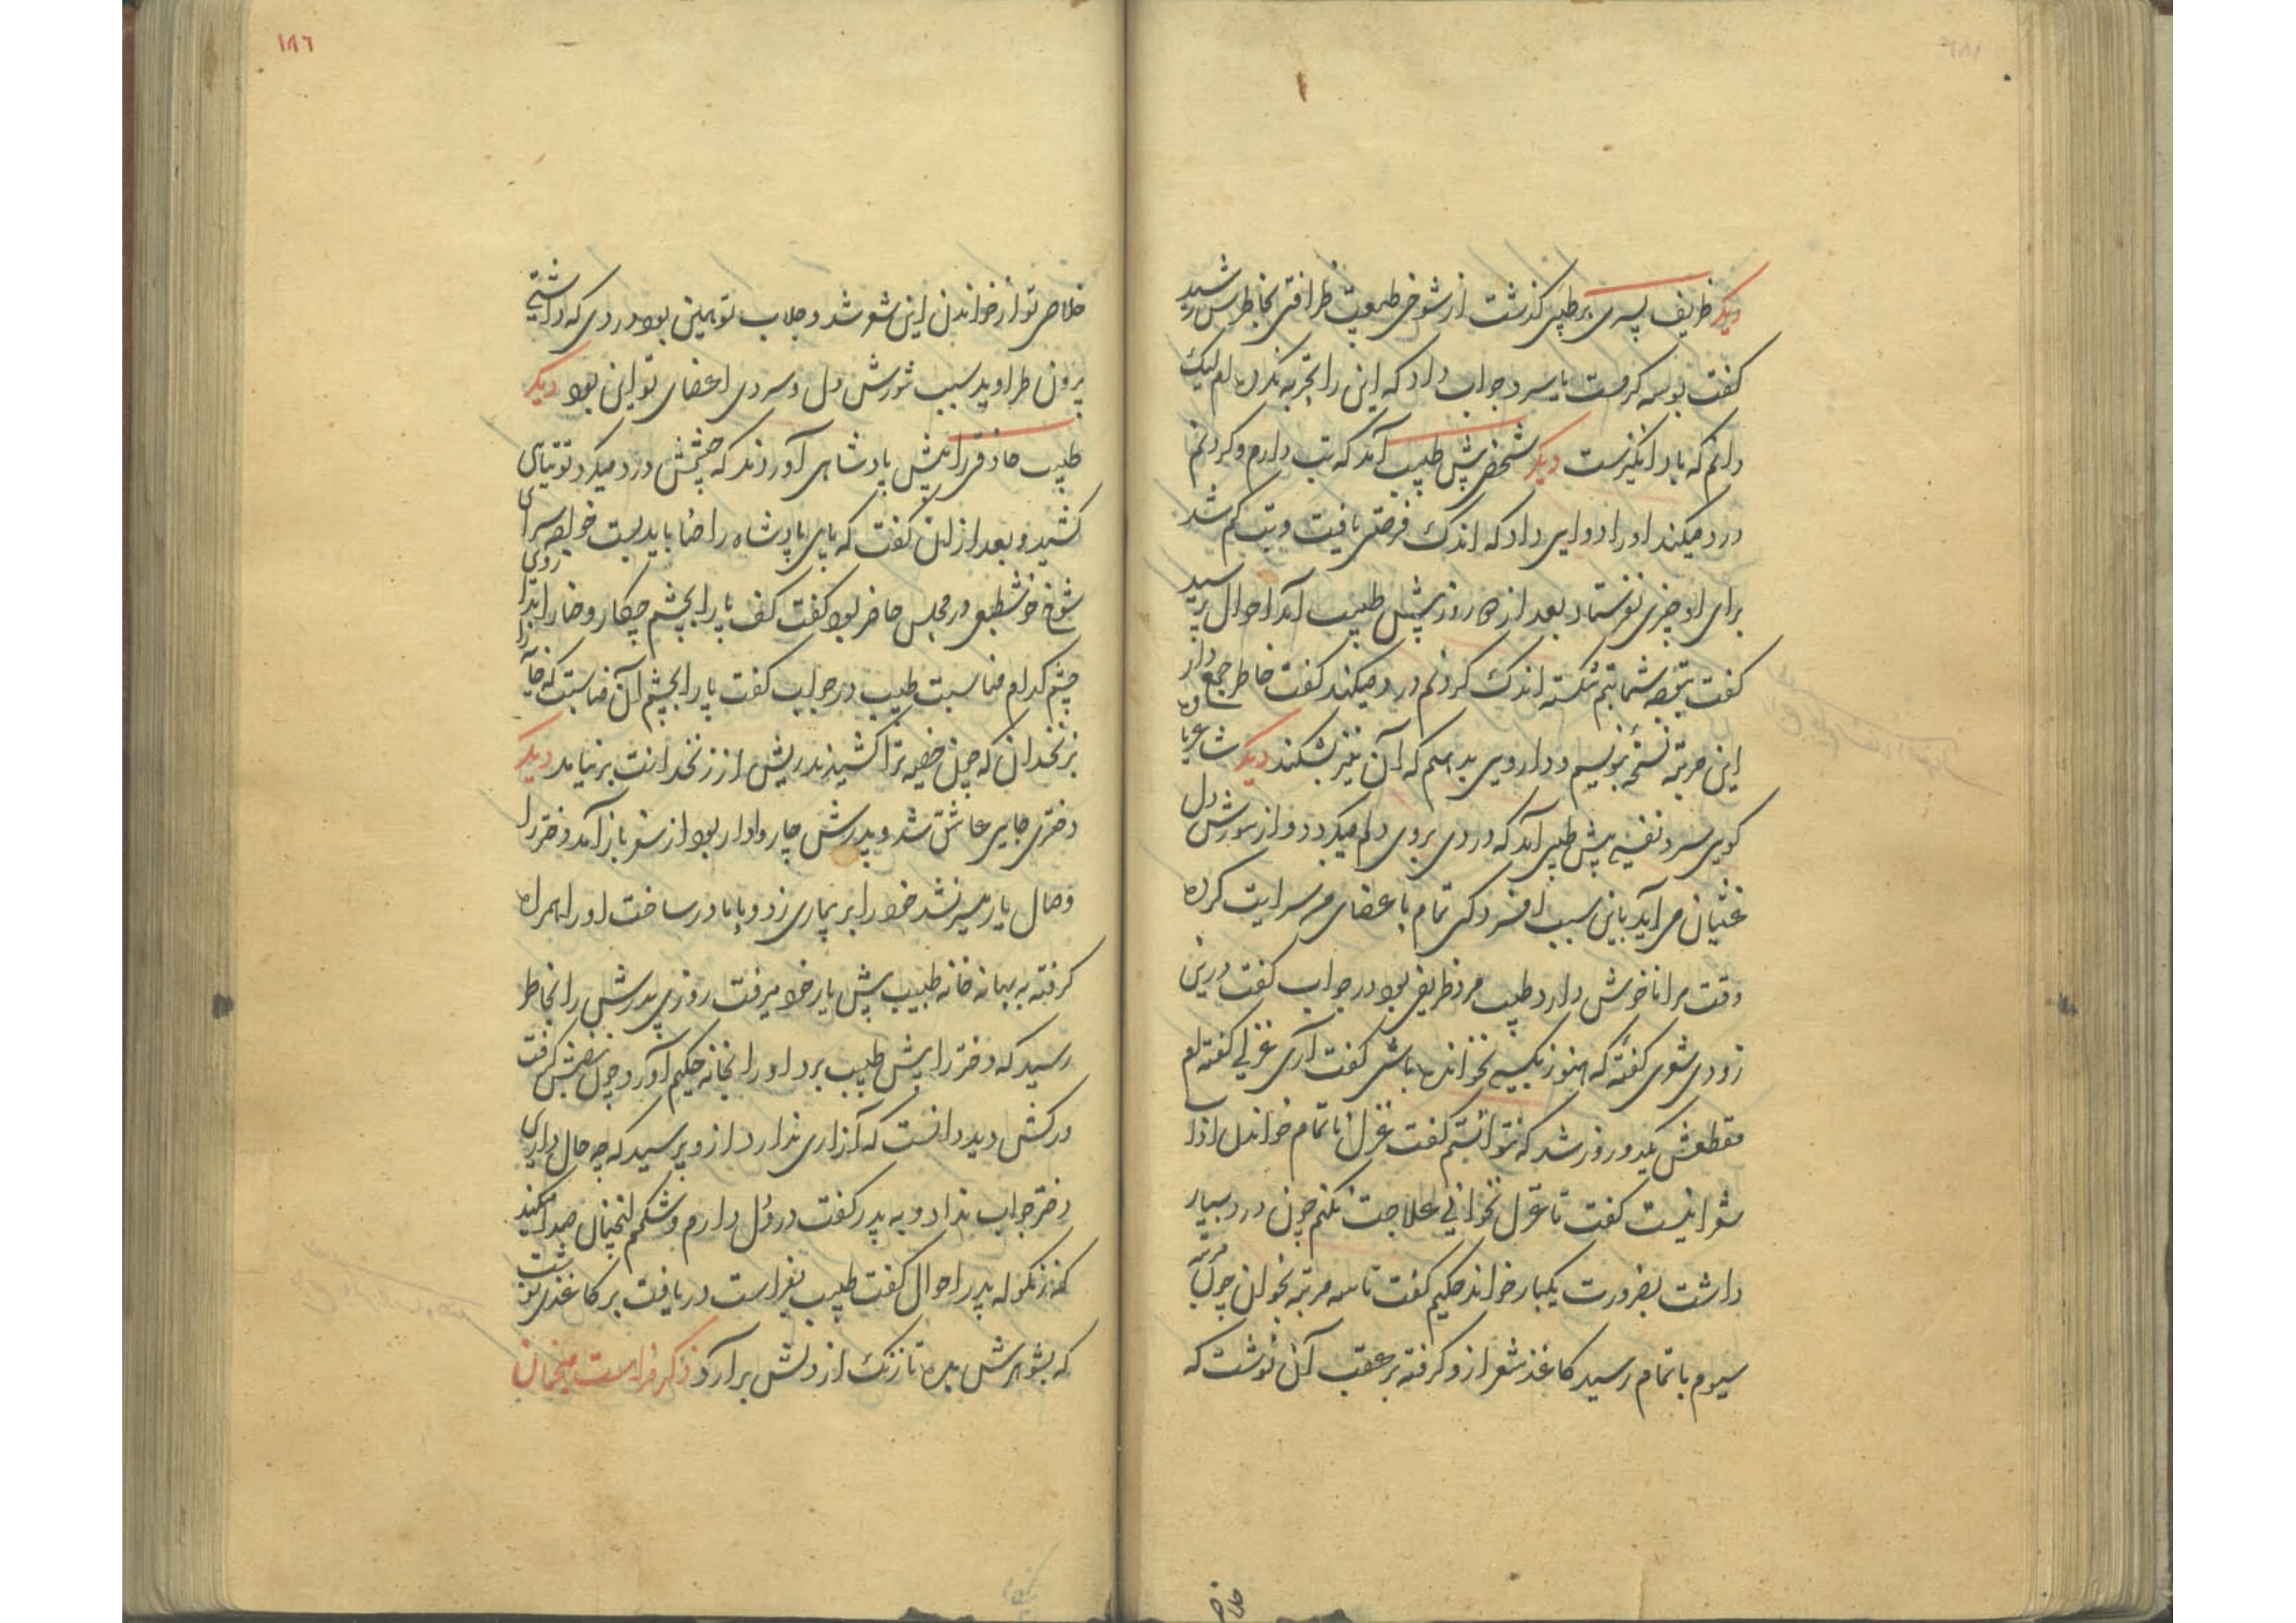 دیگر ظریف پسری بر طبیبی گذشت از شوخی طبعیت ظرافتی بخاطرش رسید
گفت بوسه گرمست یا سرد جواب داد که این را تجربه نکرده‌ام لیک
دانم که باد انگیزست دیگر شخصی پیش طبیب آمد که تب دارم و گردنم
درد میکند او را دوایی داد که اندک فرصتی یافت و تب کم شد
برای او چیزی نفرستاد بعد از ده روز پیش طبیب آمد احوال پرسید
گفت بتوجه شما تبم شکسته اندک گردنم درد میکند گفت خاطر جمع دار
این مرتبه نسخهٔ بنویسم و دارویی بدهم که آن نیز بشکند دیگر شاعر یا
گویی سرد نفسی پیش طبیبی آمد که دردی بر روی دلم میگردد و از شورش دل
غثیان می آید باین سبب افسردگی تمام باعضای من سرایت کرده
وقت مرا ناخوش دارد طبیب مرد ظریفی بود در جواب گفت درین
زودی شعری گفتهٔ که هنوز بکسی نخوانده باشی گفت آری غزلی گفته‌ام
مقطعش یکدو روز شد که نتوانستم گفت غزل ناتمام خواندن
شعرا نیست گفت تا غزل نخوانی علاجت نکنم چون درد بسیار
داشت بضرورت یکبار خواند حکیم گفت تا سه مرتبه بخوان چون مرتبه
سیوم باتمام رسید کاغذ شعر ازو گرفته بر عقب آن نوشت که
خلاص
۱۸۶
خلاصی تو از خواندن این شعر شد و جلاب تو همین بود دردی که داشتی
برون طراوید سبب شورش دل و سردی اعضای تو این بود دیگر
طبیب حاذقی را پیش پادشاهی آوردند که چشمش درد میکرد توتیای
کشید و بعد از ان گفت که پای پادشاه را حنا باید بست خواجه سرای
شوخ خوشطبعی در مجلس حاضر بود گفت کف پا را بچشم چکار و حنا را با
چشم کدام مناسبت طبیب در جواب گفت پا را بچشم آن مناسبت که خایه را
بزنخدان که چون خصیه ترا کشیدند ریش از زنخدانت برنیامد دیگر
دختری جایی عاشق شد و پدرش چاروادار بود از سفر باز آمد دختر را
وصال یار میسر نشد خود را بر بیماری زد و با مادر ساخت او را همراه
گرفته به بهانه خانه طبیب پیش یار خود میرفت روزی پدرش را بخاطر
رسید که دختر را پیش طبیب برد او را بخانه حکیم آورد چون نبضش گرفت
و رگش دید دانست که آزاری ندارد ازو پرسید که چه حال داری
دختر جواب نداد و به پدر گفت درد دل دارم و شکمم آنچنان صدا میکند
که زنگوله پدر احوال گفت طبیب بفراست دریافت بر کاغذی نوشت
که بشوهرش بده تا زنگ از دلش برآرد ذکر فراست منجمان